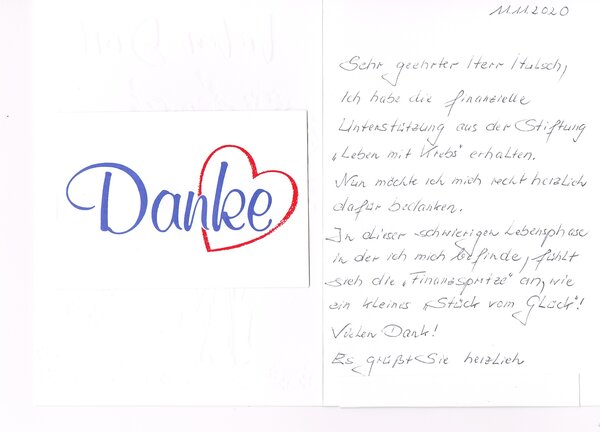 Danke
11.11.2020
Sehr geehrter Herr Hulsch,
Ich habe die finanzielle
Unterstützung aus der Stiftung
„Leben mit Krebs“ erhalten.
Nun möchte ich mich recht herzlich
dafür bedanken.
In dieser schwierigen Lebensphase
in der ich mich befinde, fühlt
sich die „Finanzspritze“ an, wie
ein kleines „Stück vom Glück“!
Vielen Dank!
Es grüßt Sie herzlich